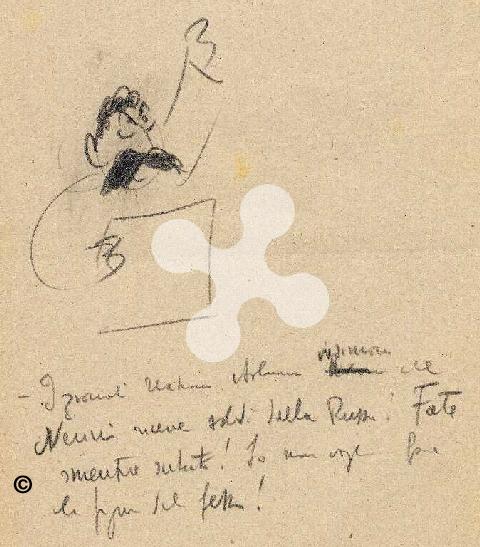 - I giornali italiani che
Nenni riceve soldi dalla Russia! Fate
smentire subito! Io non voglio fare
la figura del fesso!
©